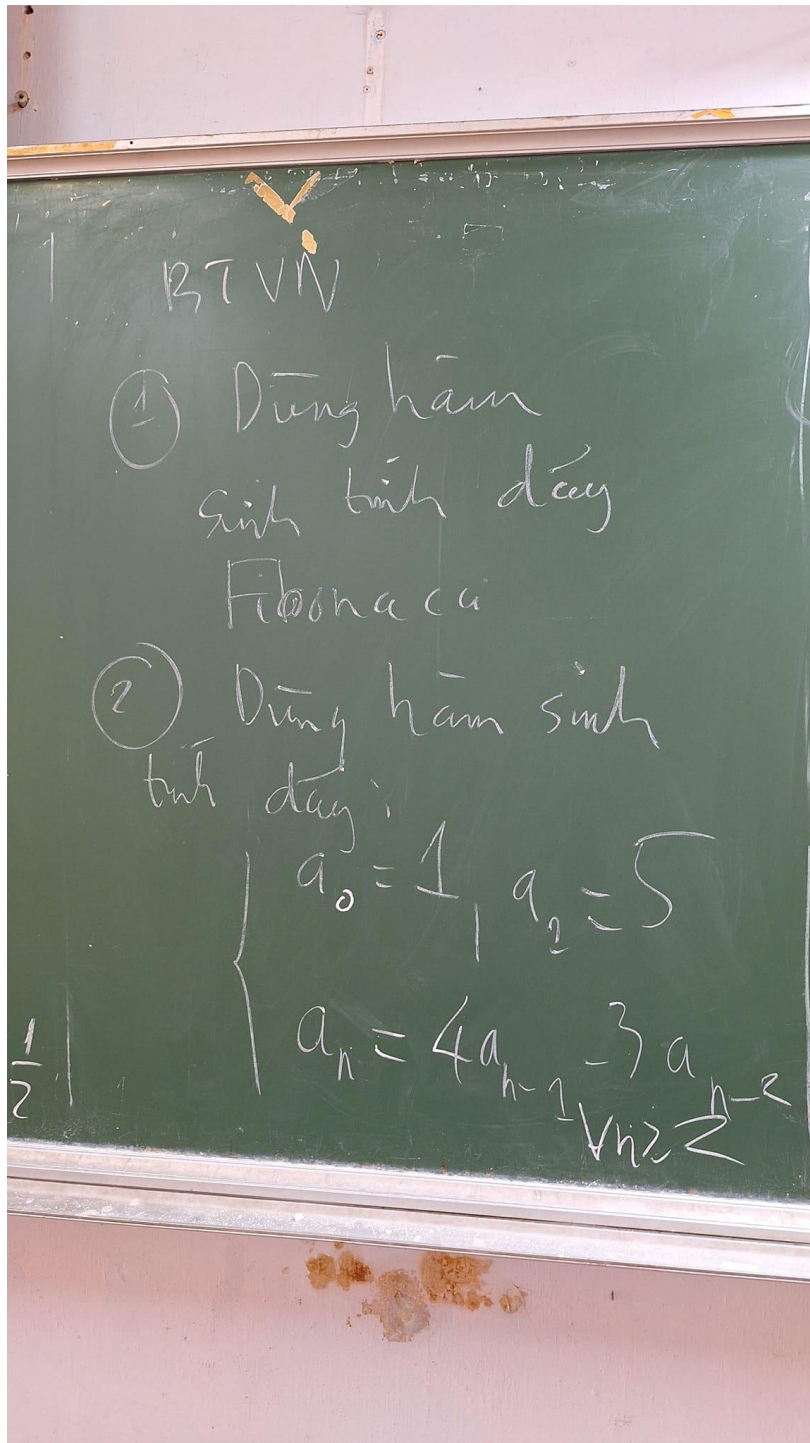 BTVN
① Dùng hàm
sinh tính dãy
Fibonacci
② Dùng hàm sinh
tính dãy:
a₀ = 1, a₁ = 5
aₙ = 4aₙ₋₁ - 3aₙ₋₂
∀n≥2
1/2